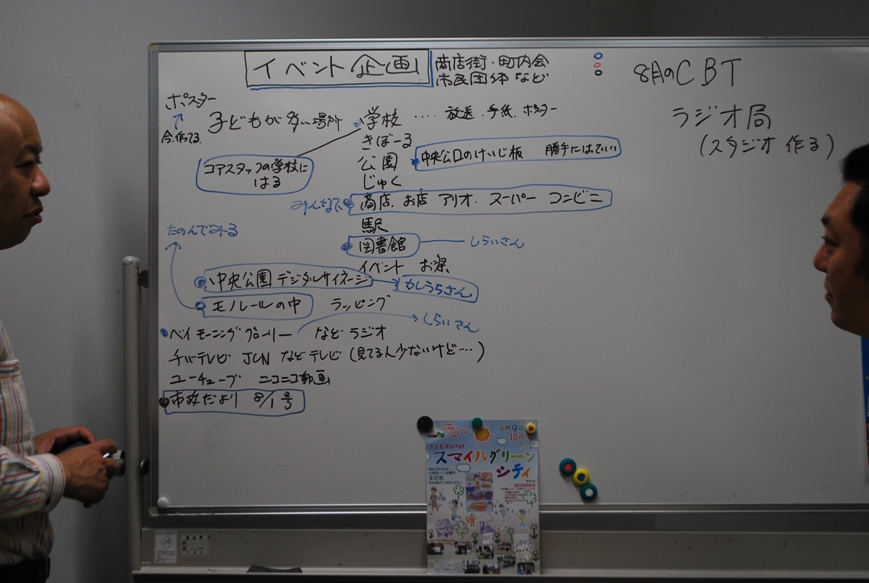 イベント企画
商店街・町内会
市民団体など
8月のCBT
ポスター
子どもが多い場所 学校 .... 放送、手紙、ポスター
ラジオ局
(スタジオ作る)
きぼーる
コアスタッフの学校に
はる
公園 中央公口のけいじ板 勝手にはてい
じゅく
みんなで 商店、お店 アリオ、スーパー コンビニ
駅
たのんでみる
図書館 しらいさん
イベント お祭
中央公園 デジタルサイネージ かしうちさん
モノレールの中 ラッピング
ベイモーニンググローリー などラジオ しらいさん
チバテレビ JCN などテレビ (見てる人少ないけど....)
ユーチューブ ニコニコ動画
市政だより 8/1号
6月9日
10日
スマイルグリーン
シティ
子ども